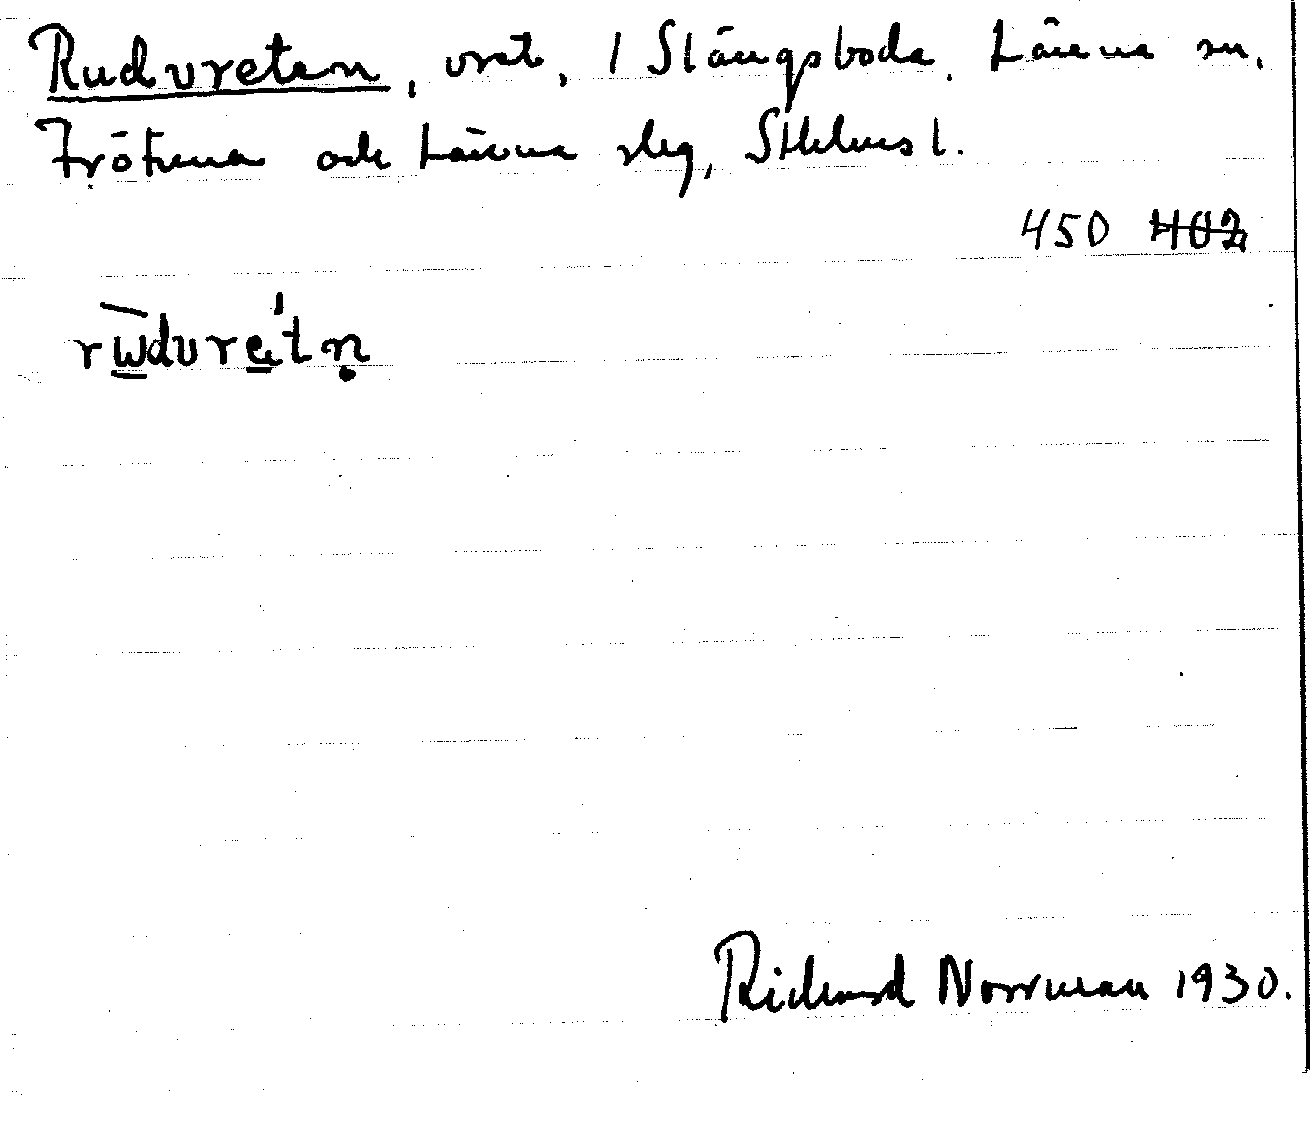 Rudvreten, vret, 1 Slängsboda, Länna sn,
Frötuna och Länna slg, Sthlms l.
450 ~~402~~
rudvretn
Richard Norrman 1930.